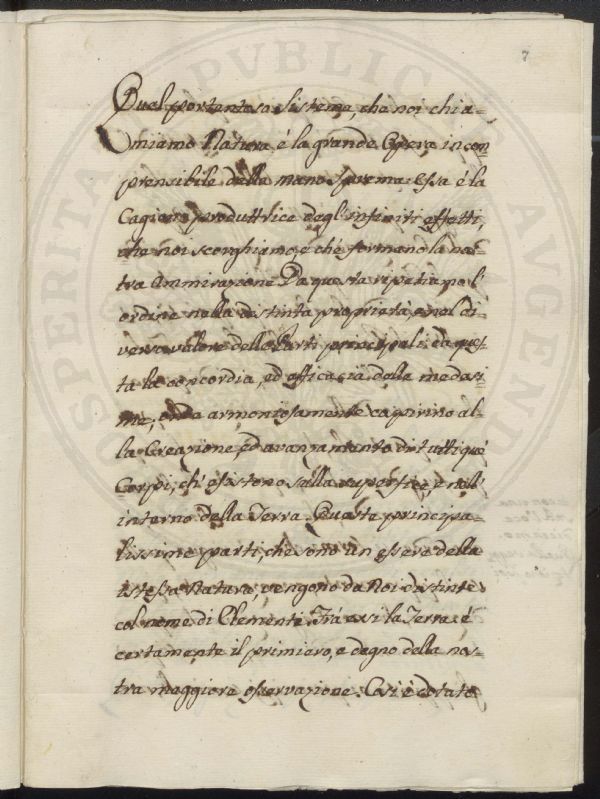 7
Quel portentoso Sistema, che noi chia=
miamo Natura, è la grande Opera incom
prensibile della mano Suprema; Essa è la
Cagione produttrice degl'infiniti effetti,
che noi scorghiamo, e che formano la nos=
tra Ammirazione. Da questa ripetiamo l'
ordine nella distinta proprietà, e nel di=
verso valore delle Parti principali: da ques=
ta la concordia, ed efficacia delle medesi=
me, onde armoniosamente cospirino al=
la Creazione, ed avanzamento di tutti que'
Corpi, ch'esistono sulla superficie, e nell'
interno della Terra. Queste principa=
lissime parti, che sono un essere della
istessa Natura, vengono da Noi distinte
col nome di Elementi. Trà essi la Terra è
certamente il primiero, e degno della nos=
tra maggiore osservazione. Così è dotata
PROSPERITATI PVBLICAE AVGENDAE